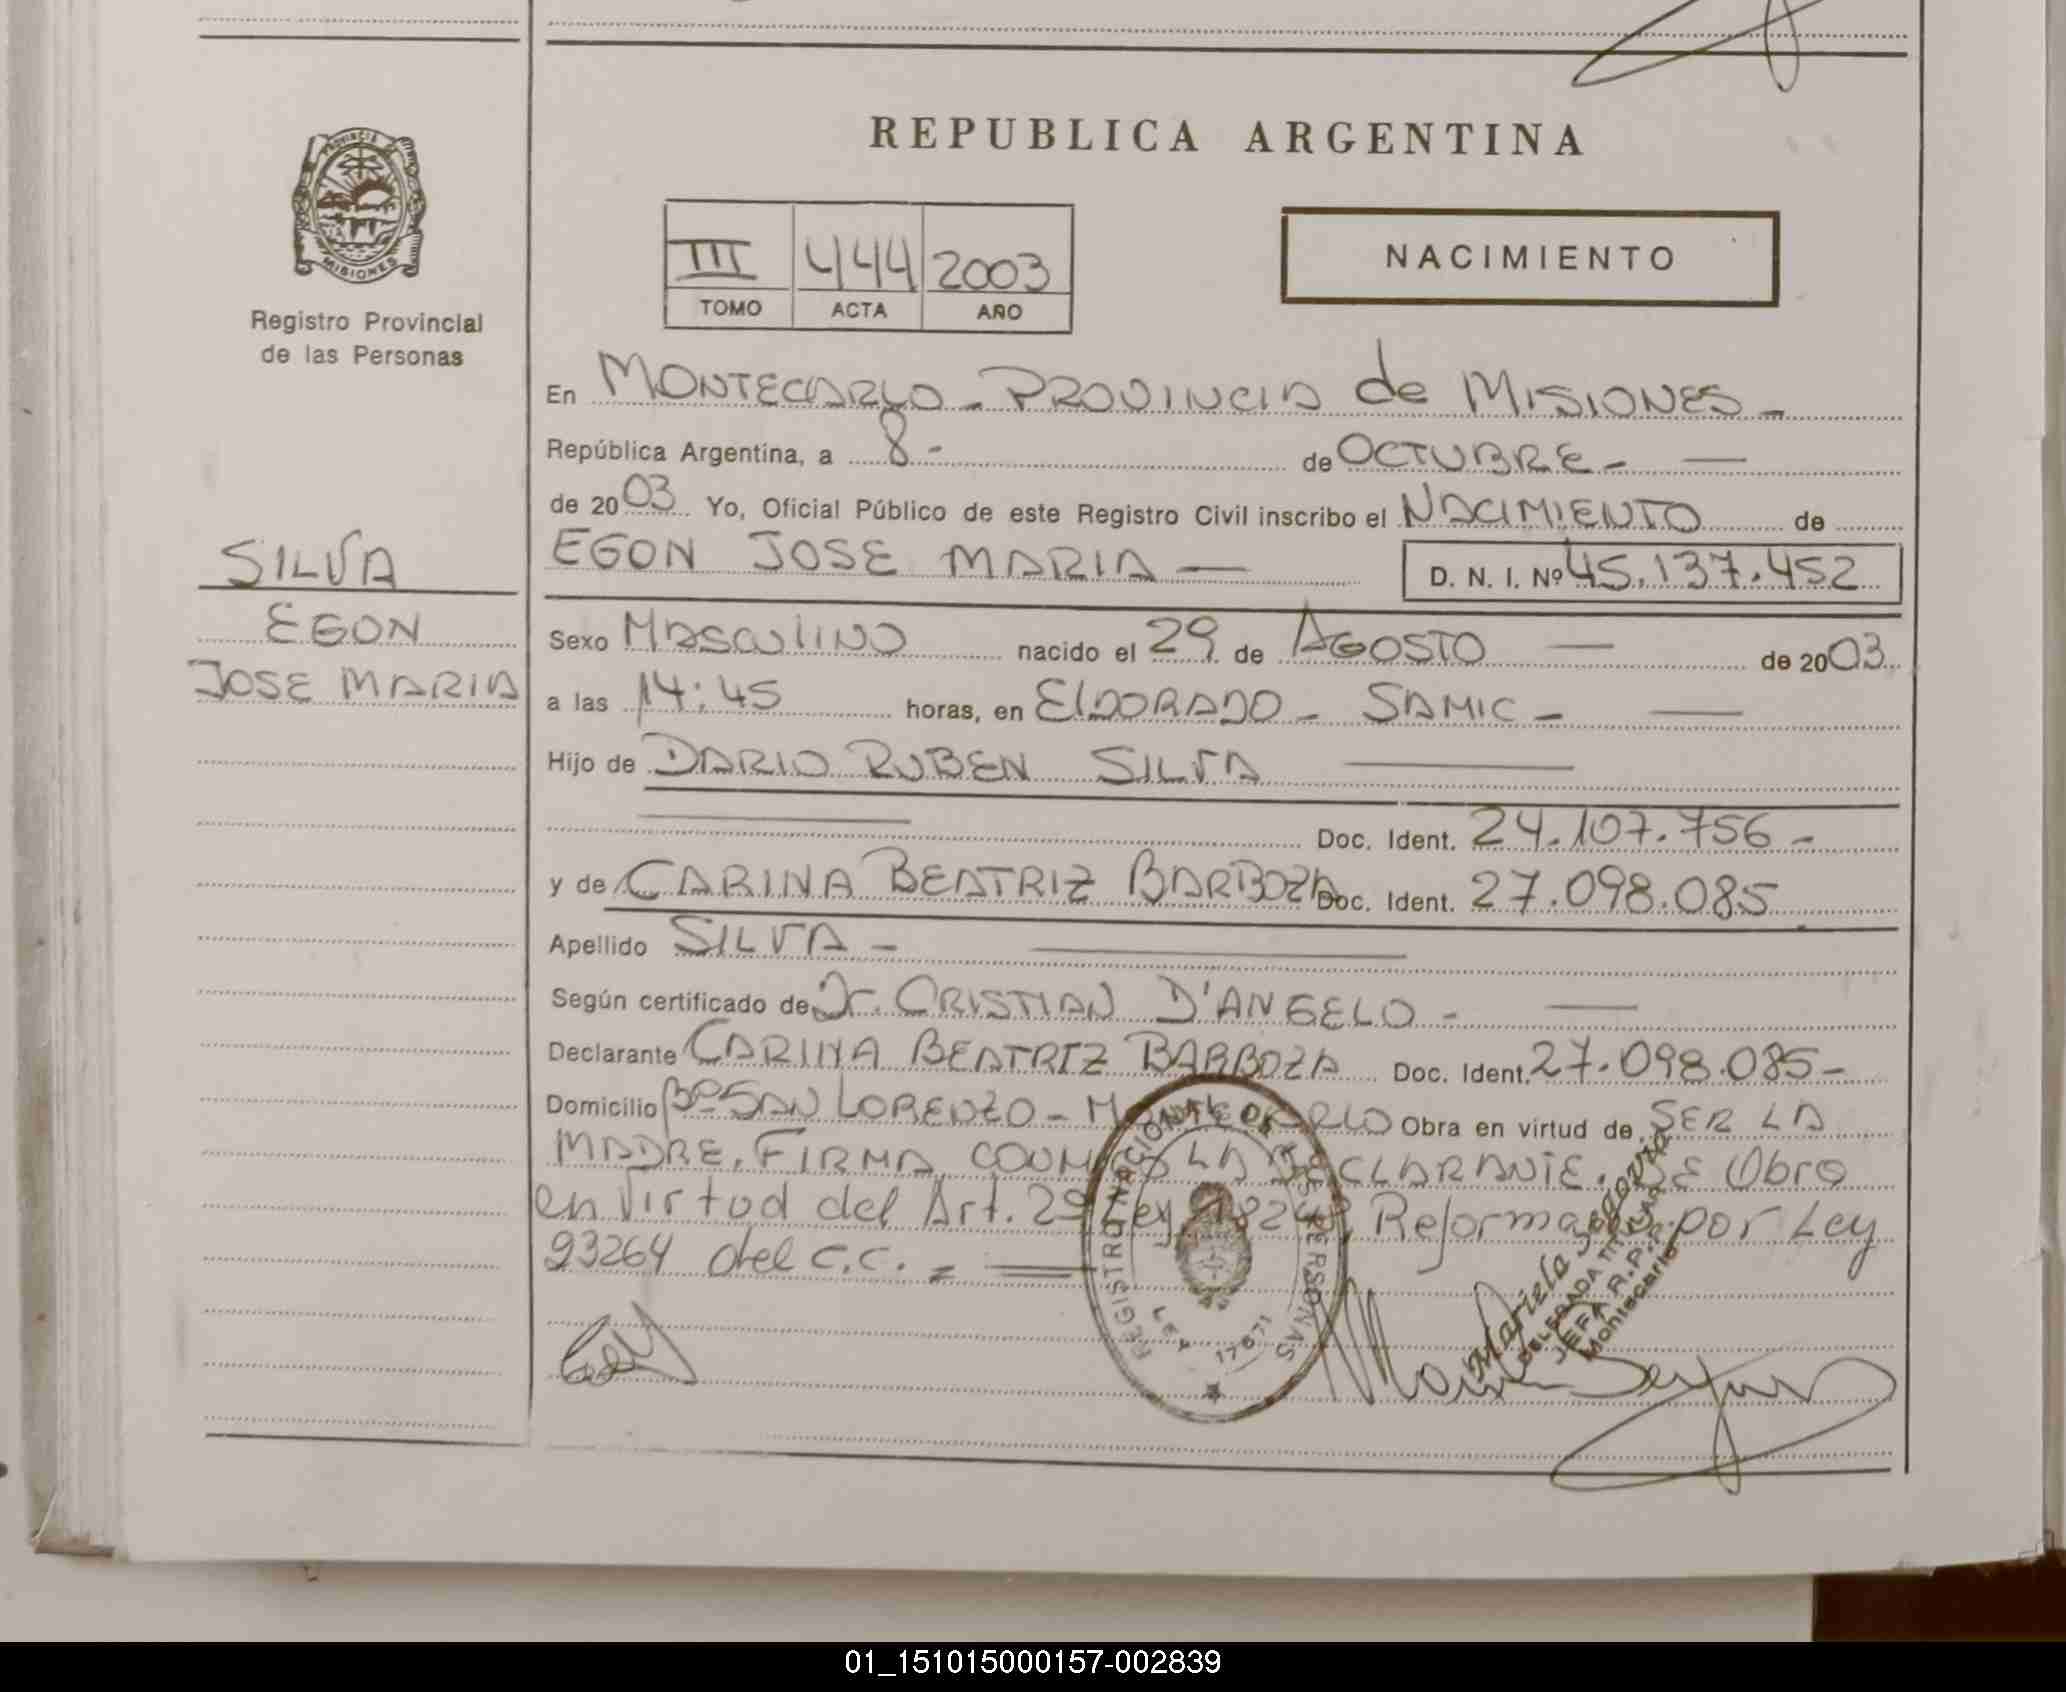 REPUBLICA ARGENTINA
PROVINCIA DE
MISIONES
Registro Provincial
de las Personas
III 444 2003
TOMO ACTA AÑO
NACIMIENTO
En MONTECARLO - PROVINCIA de MISIONES -
República Argentina, a 8 - de OCTUBRE -
de 2003 Yo, Oficial Público de este Registro Civil inscribo el NACIMIENTO de
EGON JOSE MARIA — D. N. I. Nº 45.137.452
SILVA
EGON
JOSE MARIA
Sexo MASCULINO nacido el 29 de AGOSTO — de 2003
a las 14:45 horas, en ELDORADO - SAMIC -
Hijo de DARIO RUBEN SILVA
Doc. Ident. 24.107.756 -
y de CARINA BEATRIZ BARBOZA Doc. Ident. 27.098.085
Apellido SILVA -
Según certificado de Dr. CRISTIAN D'ANGELO -
Declarante CARINA BEATRIZ BARBOZA Doc. Ident. 27.098.085 -
Domicilio Bº SAN LORENZO - MONTECARLO Obra en virtud de SER LA
MADRE. FIRMA LA DECLARANTE. SE Obro
en virtud del Art. 29 Ley Reformado por Ley
23264 del C.C. =
REGISTRO NACIONAL DE LAS PERSONAS
LEY 17671
Mariela Segovia
DELEGADA TITULAR
JEFA R.P.P.
Montecarlo
01_151015000157-002839